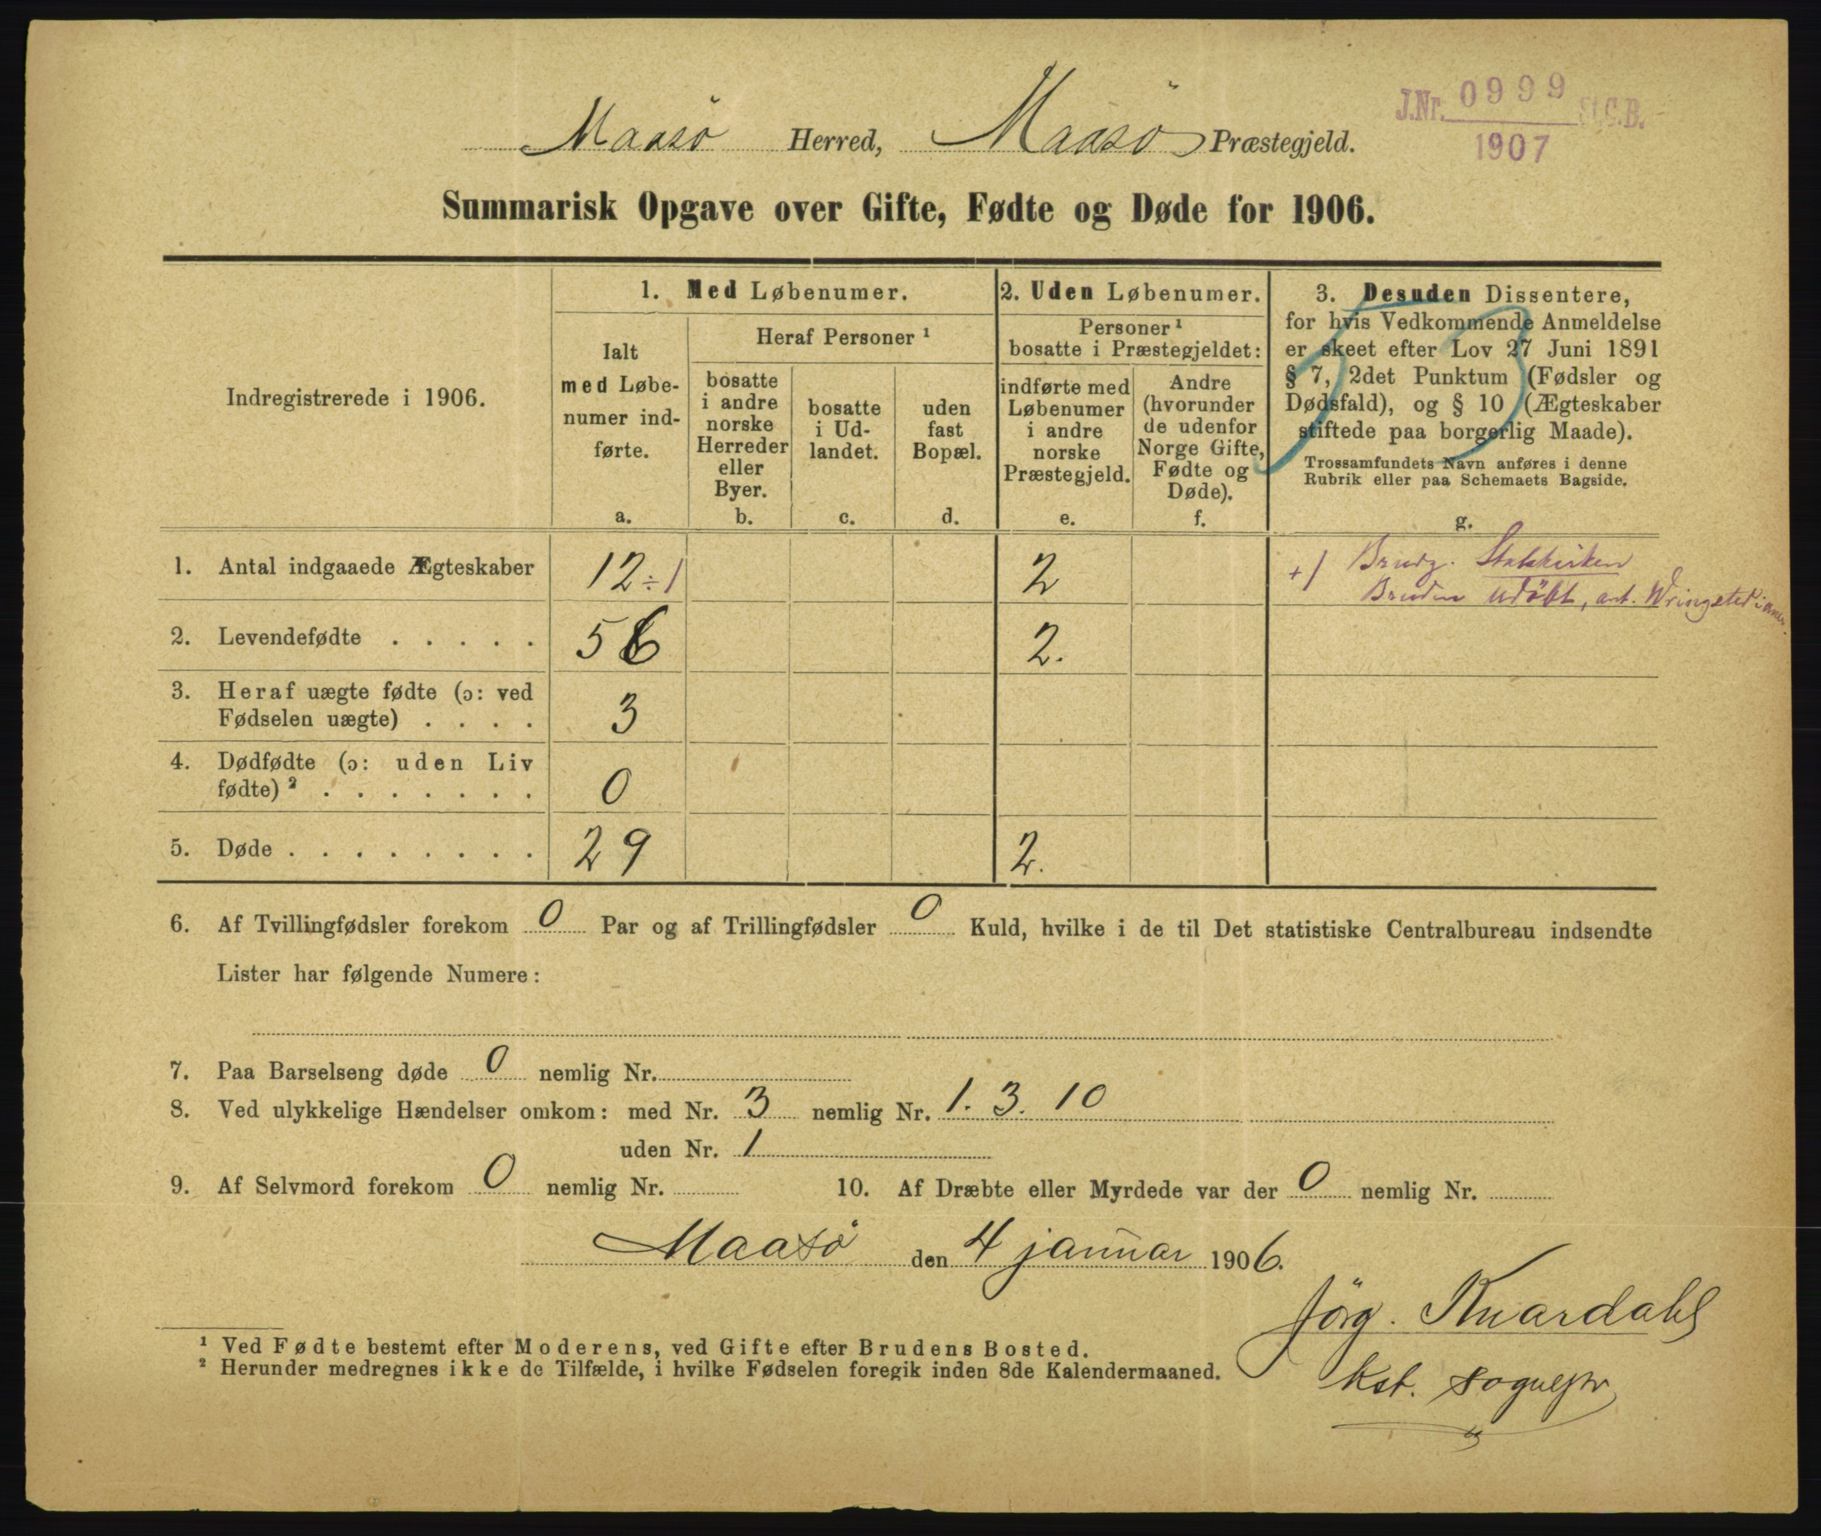 J.Nr. 0999 St.C.B.
1907
Maasø Herred, Maasø Præstegjeld.
Summarisk Opgave over Gifte, Fødte og Døde for 1906.
Indregistrerede i 1906.
1. Med Løbenumer.
Ialt
med Løbe-
numer ind-
førte.
a.
Heraf Personer ¹
bosatte
i andre
norske
Herreder
eller
Byer.
b.
bosatte
i Ud-
landet.
c.
uden
fast
Bopæl.
d.
2. Uden Løbenumer.
Personer ¹
bosatte i Præstegjeldet:
indførte med
Løbenumer
i andre
norske
Præstegjeld.
e.
Andre
(hvorunder
de udenfor
Norge Gifte,
Fødte og
Døde).
f.
3. Desuden Dissentere,
for hvis Vedkommende Anmeldelse
er skeet efter Lov 27 Juni 1891
§ 7, 2det Punktum (Fødsler og
Dødsfald), og § 10 (Ægteskaber
stiftede paa borgerlig Maade).
Trossamfundets Navn anføres i denne
Rubrik eller paa Schemaets Bagside.
g.
1. Antal indgaaede Ægteskaber 12 ÷ 1 2 + 1 Brudg. Statskirken
Bruden udöbt, ant.
2. Levendefødte . . . . . 56 2.
3. Heraf uægte fødte (ɔ: ved
Fødselen uægte) . . . . 3
4. Dødfødte (ɔ: uden Liv
fødte) ² . . . . . . . 0
5. Døde . . . . . . . . 29 2.
6. Af Tvillingfødsler forekom 0 Par og af Trillingfødsler 0 Kuld, hvilke i de til Det statistiske Centralbureau indsendte
Lister har følgende Numere:
7. Paa Barselseng døde 0 nemlig Nr.
8. Ved ulykkelige Hændelser omkom: med Nr. 3 nemlig Nr. 1. 3. 10
uden Nr. 1
9. Af Selvmord forekom 0 nemlig Nr. 10. Af Dræbte eller Myrdede var der 0 nemlig Nr.
Maasø den 4 januar 1906.
Jörg. Knardahl
kst. sognepr
¹ Ved Fødte bestemt efter Moderens, ved Gifte efter Brudens Bosted.
² Herunder medregnes ikke de Tilfælde, i hvilke Fødselen foregik inden 8de Kalendermaaned.